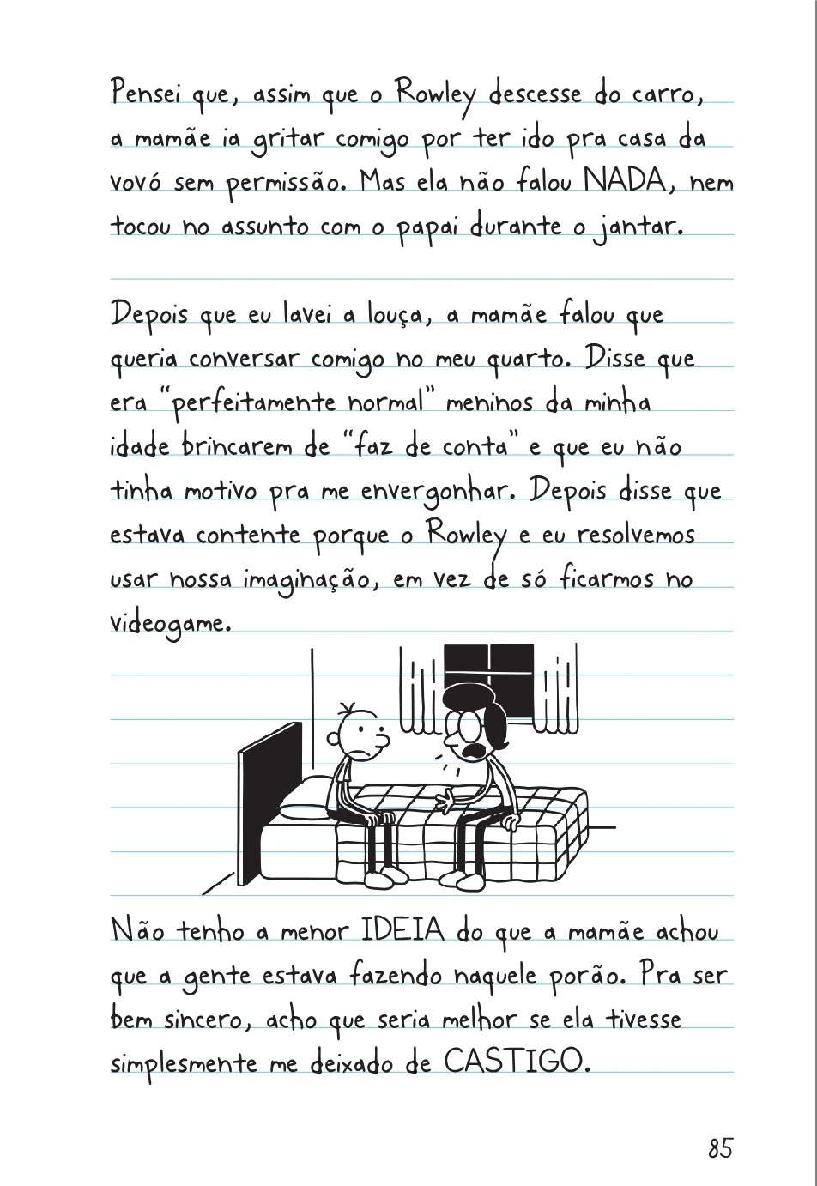 Pensei que, assim que o Rowley descesse do carro,
a mamãe ia gritar comigo por ter ido pra casa da
vovó sem permissão. Mas ela não falou NADA, nem
tocou no assunto com o papai durante o jantar.
Depois que eu lavei a louça, a mamãe falou que
queria conversar comigo no meu quarto. Disse que
era “perfeitamente normal” meninos da minha
idade brincarem de “faz de conta” e que eu não
tinha motivo pra me envergonhar. Depois disse que
estava contente porque o Rowley e eu resolvemos
usar nossa imaginação, em vez de só ficarmos no
videogame.
Não tenho a menor IDEIA do que a mamãe achou
que a gente estava fazendo naquele porão. Pra ser
bem sincero, acho que seria melhor se ela tivesse
simplesmente me deixado de CASTIGO.
85